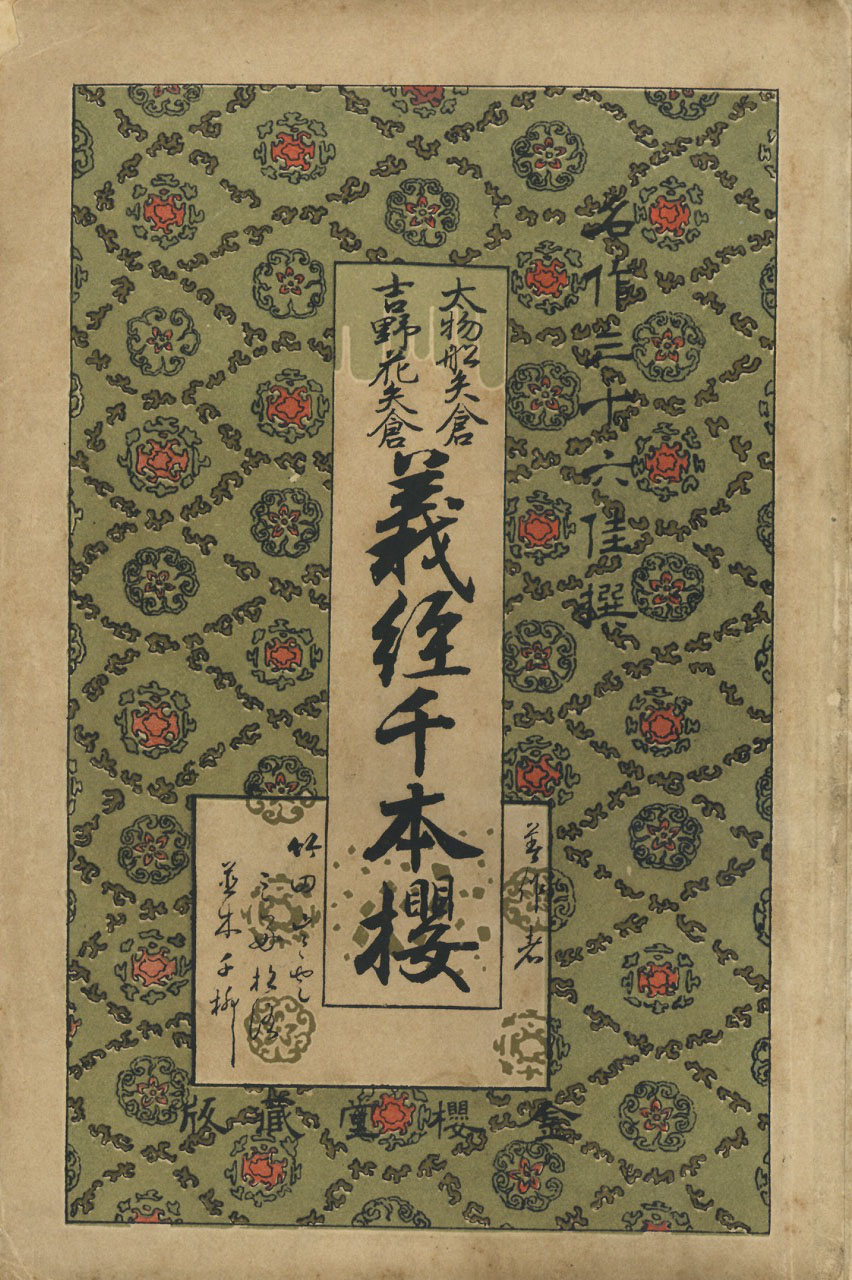 名作三十六佳撰
大物船矢倉
吉野花矢倉
義経千本櫻
著作者
竹田出雲
三好松洛
並木千柳
金櫻堂藏版